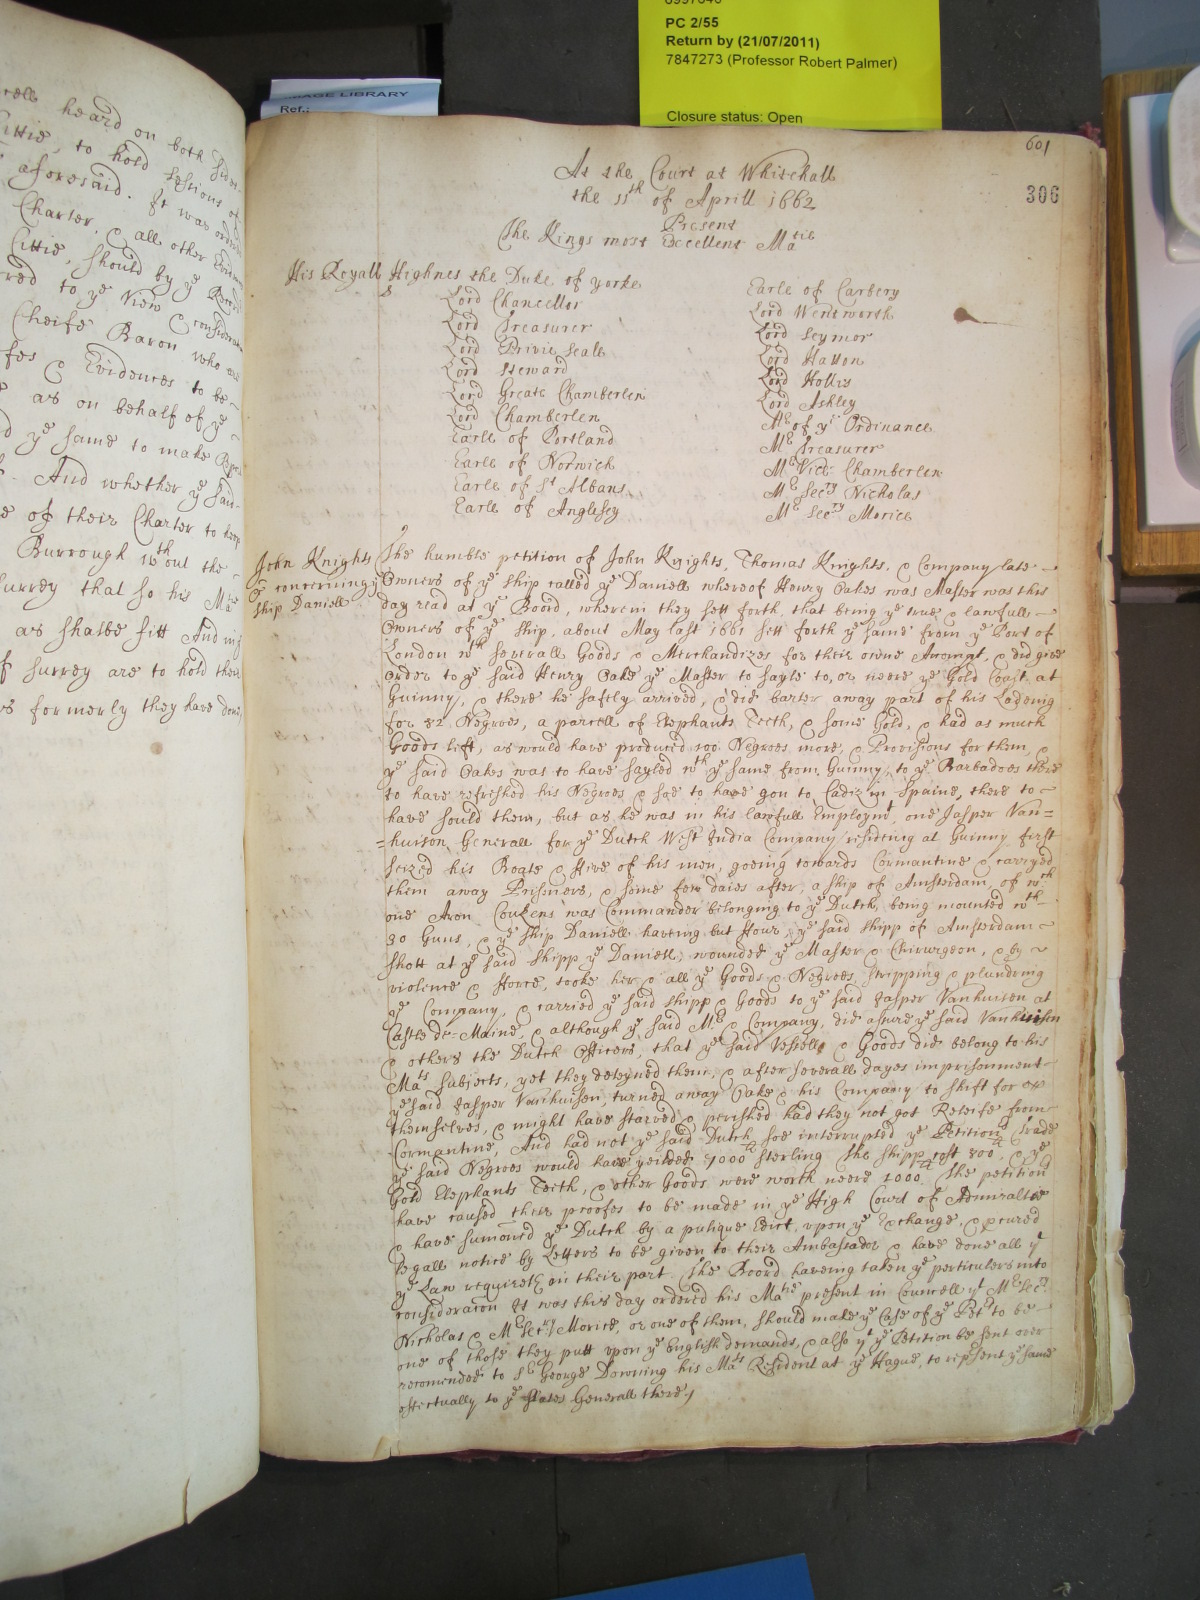 PC 2/55
Return by (21/07/2011)
7847273 (Professor Robert Palmer)
Closure status: Open
IMAGE LIBRARY
Ref.:
heard on both sides
Cittie, to hold sessions of
aforesaid. It was ordered
Charter, & all other Evidences
Cittie, should by ye Record
red to ye View & consideration
Cheife Baron who are
fes & Evidences to be
as on behalf of ye
d ye same to make Report
And whether ye said
e of their Charter to keep
Burrough wthout the
Surrey that so his Matie
as shalbe fitt And
f Surrey are to hold their
as formerly they have done,
601
306
At the Court at Whitehall
the 11th of Aprill 1662
Present
The Kings most Excellent Matie
His Royall Highnes the Duke of yorke
Lord Chancellor
Lord Treasurer
Lord Privie Seale
Lord Steward
Lord Greate Chamberlen
Lord Chamberlen
Earle of Portland
Earle of Norwich
Earle of St Albans
Earle of Anglesey
Earle of Carbery
Lord Wentworth
Lord Seymor
Lord Hatton
Lord Hollis
Lord Ashley
Mr of ye Ordinance
Mr Treasurer
Mr Vice Chamberlen
Mr Secry Nicholas
Mr Secry Morice
John Knights
& concerning ye
ship Daniell
The humble petition of John Knights, Thomas Knights, & Company late
Owners of ye ship called ye Daniell whereof Henry Oakes was Master was this
day read at ye Board, wherein they sett forth, that being ye true & lawfull
Owners of ye ship, about May last 1661 sett forth ye same from ye Port of
London wth severall Goods & Merchandizes for their owne Accompt, & did give
Order to ye said Henry Oake ye Master to sayle to, or neere ye Gold Coast at
Guinny, & there he safely arrived, & did barter away part of his Ladeing
for 82 Negroes, a parcell of Elephants Teeth, & some Gold, & had as much
Goods left, as would have produced 100 Negroes more, & Provisions for them, &
ye said Oakes was to have sayled wth ye same from Guinny, to ye Barbadoes there
to have refreshed his Negroes & soe to have gon to Cadiz in Spaine, there to
have sould them, but as he was in his lawfull Employmt, one Jasper Van=
=huison Generall for ye Dutch West India Company residing at Guinny first
seized his Boate & ffive of his men, goeing towards Cormantine & carryed
them away Prisoners, & some few daies after, a ship of Amsterdam, of wch
one Aron Coukens was Commander belonging to ye Dutch, being mounted wth
30 Guns, & ye ship Daniell having but ffour, ye said shipp of Amsterdam
shott at ye said shipp ye Daniell, wounded ye Master & Chirurgeon, & by
violence & fforce, tooke her & all ye Goods & Negroes, stripping & plundring
ye Company, & carried ye said shipp & Goods to ye said Jasper Vanhuisen at
Castle de-Maine, & although ye said Mr & Company, did assure ye said Vanhuisen
& others the Dutch Officers, that ye said Vessell & Goods did belong to his
Mats subjects, yet they deteyned them, & after severall dayes imprisonment
ye said Jasper Vanhuisen, turned away Oake & his Company to shift for
themselves, & might have starved & perished had they not got Releife from
Cormantine, And had not ye said Dutch soe interrupted ye Petitionrs Trade
ye said Negroes would have yeilded 7000 sterling The shipp cost 800 & ye
Gold Elephants Teeth, & other Goods were worth neere 1000. The petitionrs
have caused their proofes to be made in ye High Court of Admiraltie
& have sumoned ye Dutch by a publique Edict, vpon ye Exchange, & pcured
legall notice by Letters to be given to their Ambassador & have done all yt
ye Law requireth on their part. The Board haveing taken ye perticulers into
consideracon It was this day ordered his Matie present in Councell yt Mr Secry
Nicholas & Mr Secry Morice, or one of them, should make ye Case of ye Petrs to be
one of those they putt vpon ye English demands, & also yt ye Petition be sent over
recomended to Sr George Downing his Mats Resident at ye Hague, to represent ye same
effectually to ye States Generall there